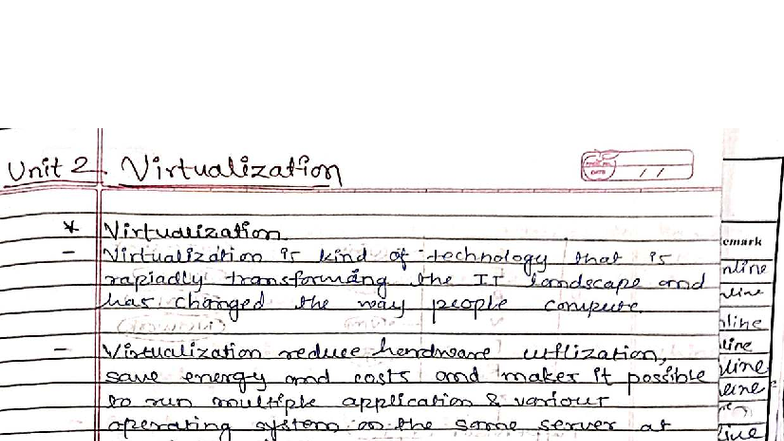 Unit 2. Virtualization
DATE / /
* Virtualization
- Virtualization is kind of technology that is
rapiadly transforming the IT landscape and
has changed the way people compute.
- Virtualization reduce hardware utilization,
save energy and costs and makes it possible
to run multiple application & various
operating system on the same server at
emark
nline
nline
nline
line
line
line
line